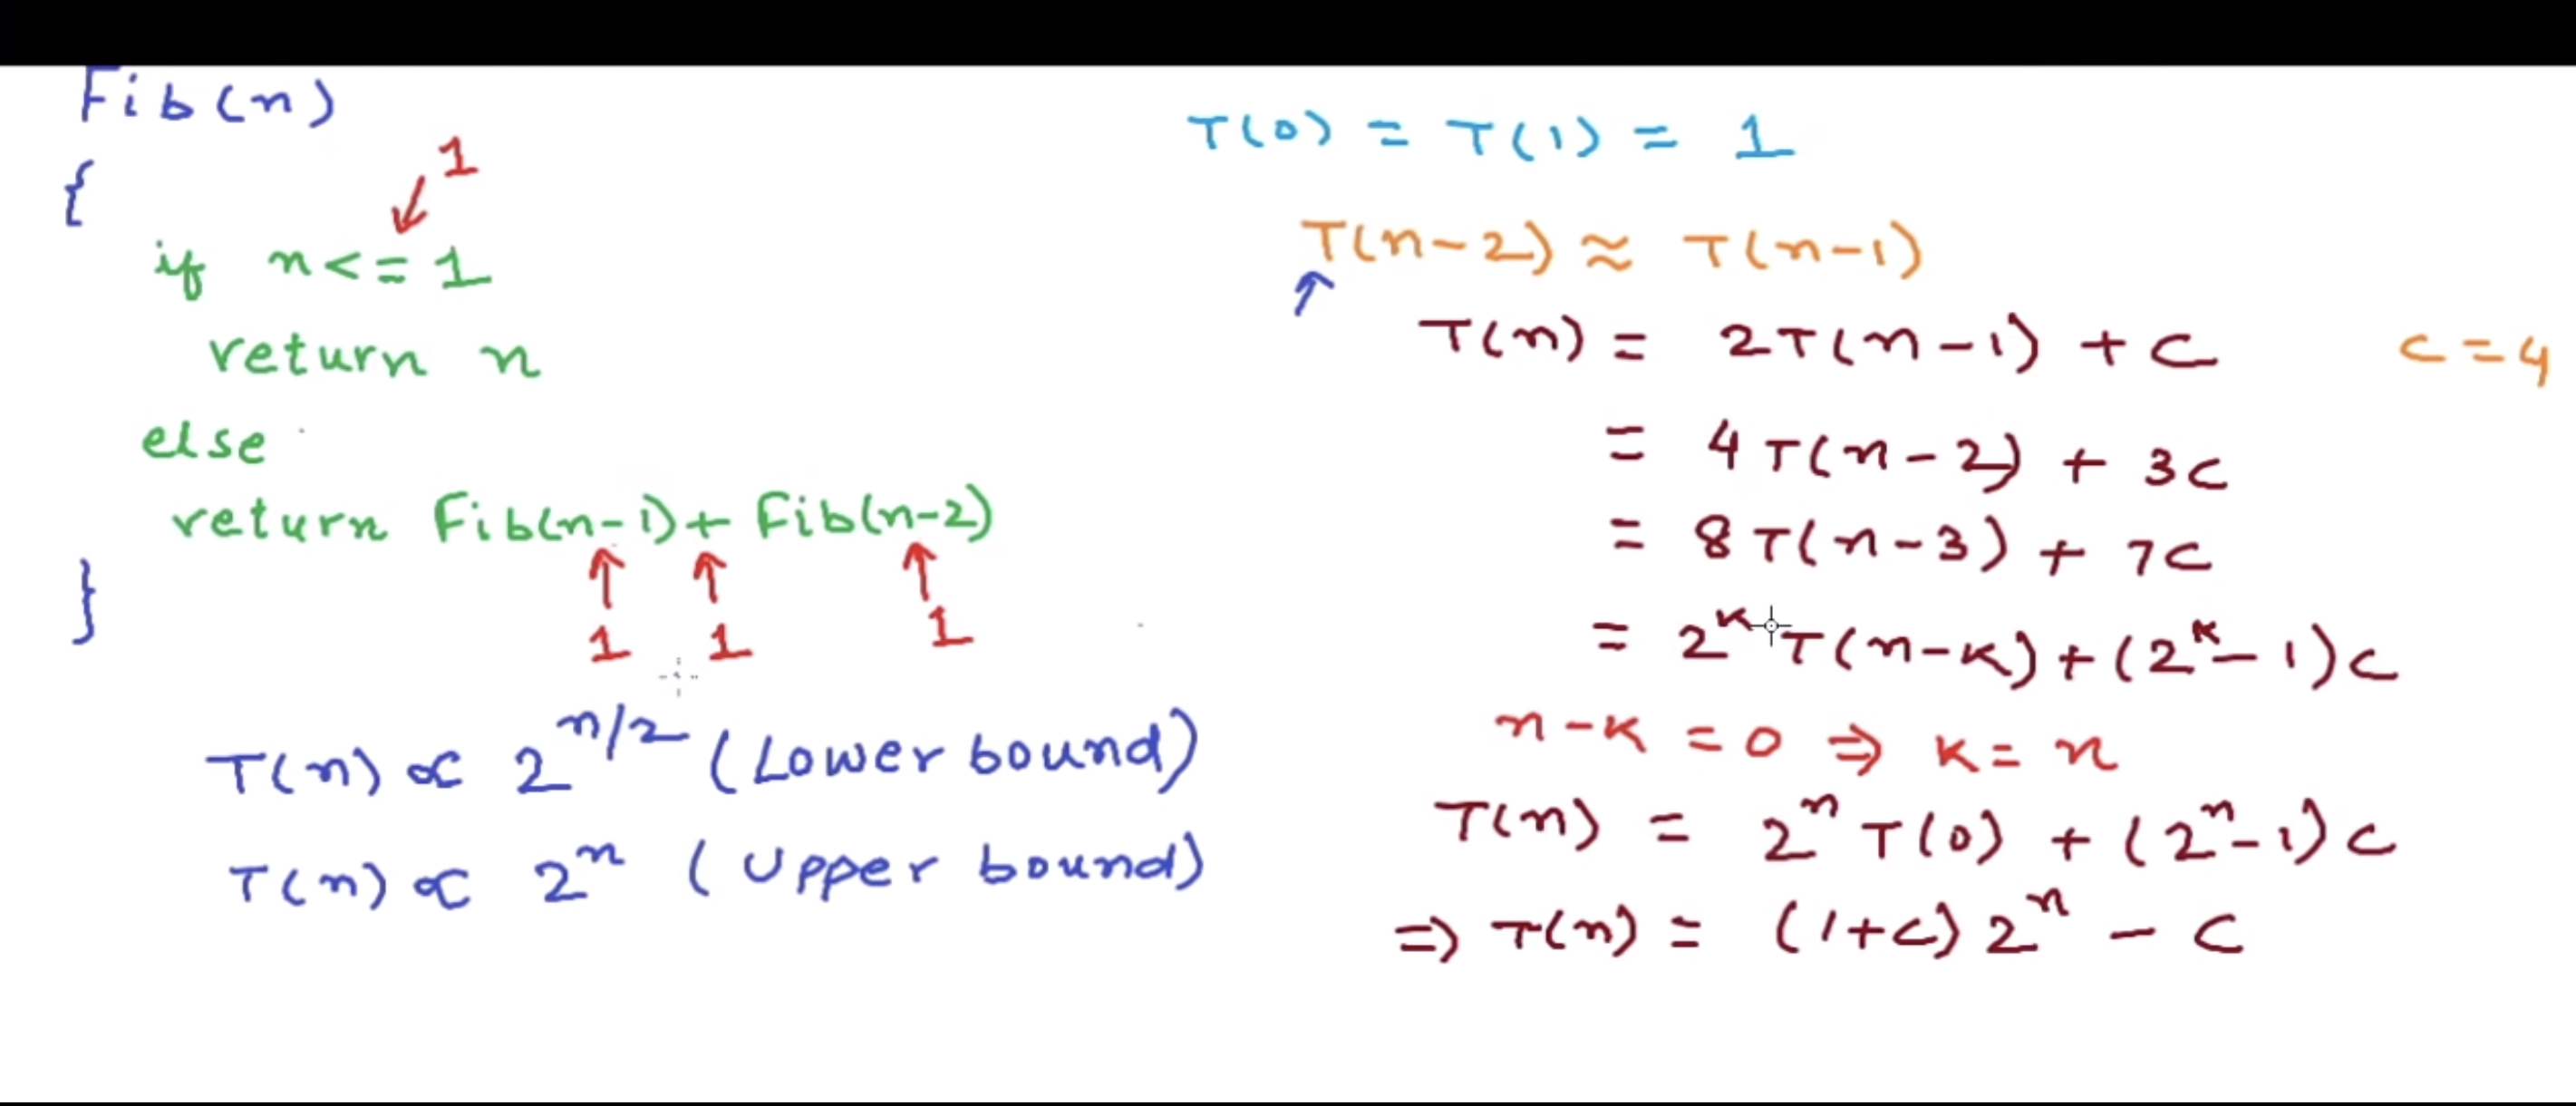 Fib(n)
{
1
if n<=1
return n
else
return Fib(n-1)+ Fib(n-2)
1 1 1
}
T(n) ∝ 2^{n/2} (Lower bound)
T(n) ∝ 2^n (Upper bound)
T(0) = T(1) = 1
T(n-2) ≈ T(n-1)
T(n) = 2T(n-1) + C C=4
= 4T(n-2) + 3C
= 8T(n-3) + 7C
= 2^K T(n-K) + (2^K - 1)C
n-K = 0 ⇒ K = n
T(n) = 2^n T(0) + (2^n - 1)C
⇒ T(n) = (1+C) 2^n - C